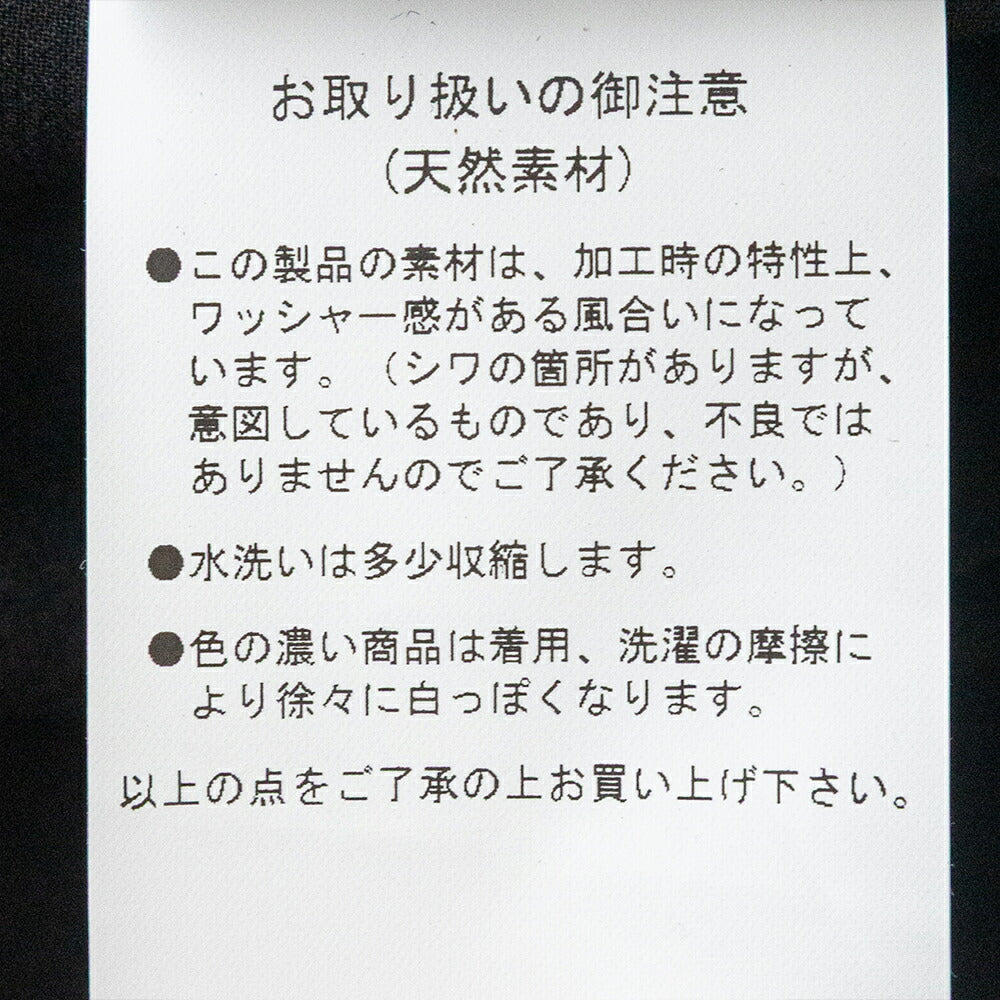 お取り扱いの御注意
(天然素材)
●この製品の素材は、加工時の特性上、
ワッシャー感がある風合いになって
います。(シワの箇所がありますが、
意図しているものであり、不良では
ありませんのでご了承ください。)
●水洗いは多少収縮します。
●色の濃い商品は着用、洗濯の摩擦に
より徐々に白っぽくなります。
以上の点をご了承の上お買い上げ下さい。